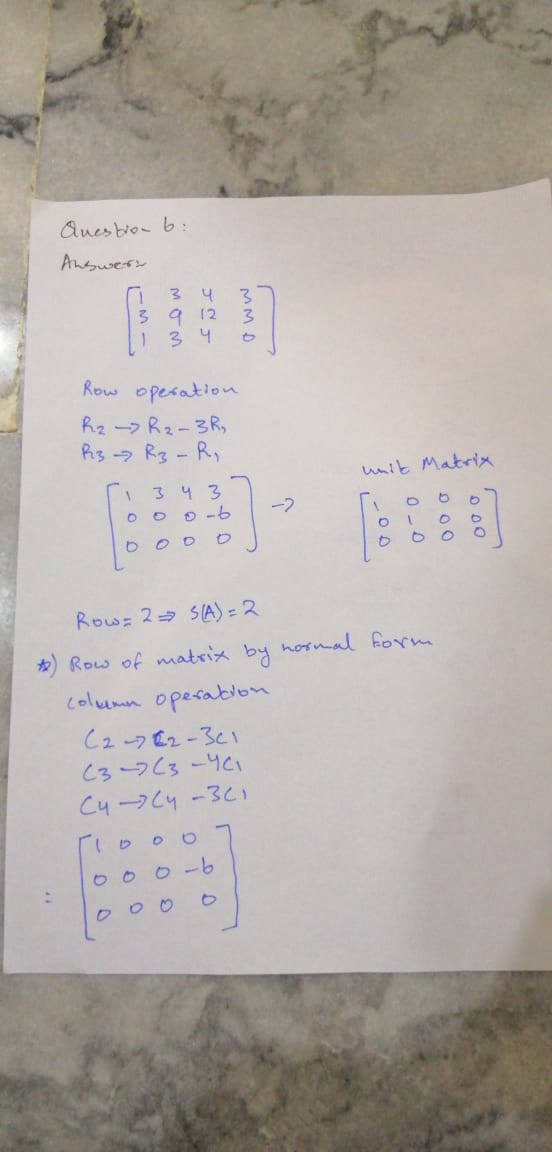 Question 6:
Answer:
1 3 4 3
3 9 12 3
1 3 4 0
Row operation
R2 → R2 - 3R1
R3 → R3 - R1
1 3 4 3
0 0 0 -6
0 0 0 0
→
unit Matrix
1 0 0 0
0 1 0 0
0 0 0 0
Row = 2 ⇒ S(A) = 2
*) Row of matrix by normal form
column operation
C2 → C2 - 3C1
C3 → C3 - 4C1
C4 → C4 - 3C1
=
1 0 0 0
0 0 0 -6
0 0 0 0